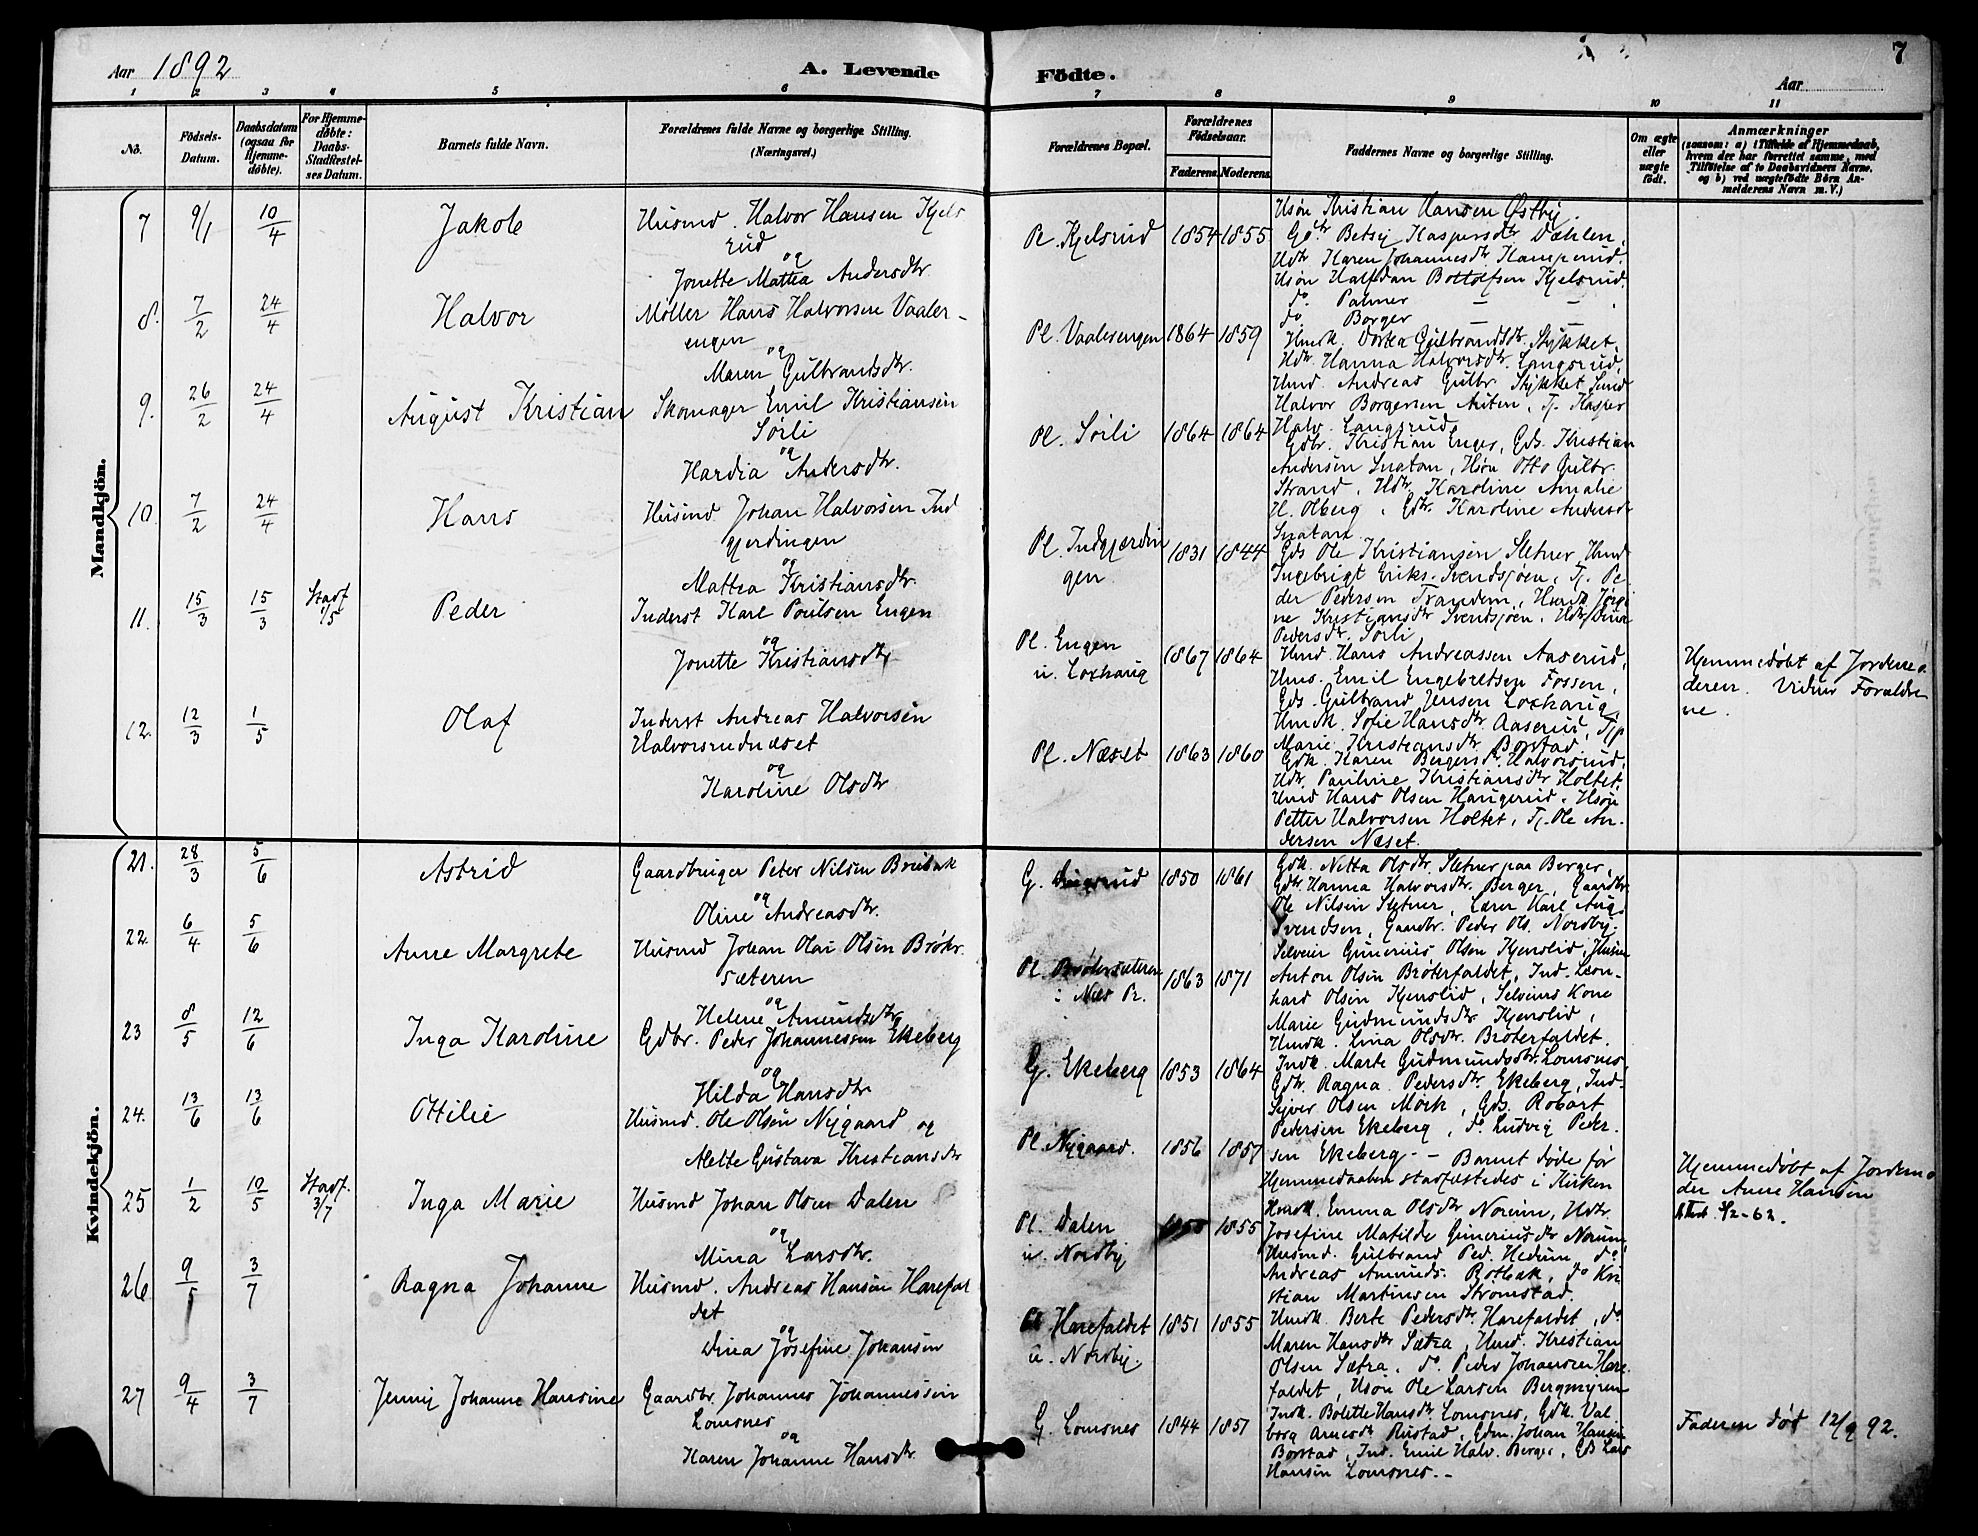 Aar 1892
A. Levende Födte.
7
Aar
1 2 3 4 5 6 7 8 9 10 11
No.
Födsels-Datum.
Daabsdatum (ogsaa for Hjemme-döbte).
For Hjemme-döbte: Daabs-Stadfæstel-ses Datum.
Barnets fulde Navn.
Forældrenes fulde Navne og borgerlige Stilling. (Næringsvei.)
Forældrenes Bopæl.
Forældrenes Födselsaar.
Faderens. Moderens.
Faddernes Navne og borgerlige Stilling.
Om ægte eller uægte födt.
Anmærkninger
(saasom: a) i Tilfælde af Hjemmedaab, hvem der har forrettet samme, med Tilföielse af to Daabsvidners Navne. og b) ved uægtefödte Börn Anmelderens Navn m. V.)
Mandkjön.
7 9/1 10/4 Jakob
Husmd. Halvor Hansen Kjels
rud
og
Jonette Mattea Andersdtr.
Pl. Kjelsrud 1854 1855
Usön Kristian Hansen Östby.
Gdtr. Betsy Kaspersdtr. Dæhlen,
Hdtr. Karen Johannesdtr. Kamperud.
Usön Halfdan Bottolfsen Kjelsrud.
do. Palmer —
do Borger —
8. 7/2 24/4 Halvor
Möller Hans Halvorsen Vaaler-
engen
og
Maren Gulbrandsdtr.
Pl. Vaalerengen 1864 1859
Hmdk. Dorka Gulbrandsdtr. Stykket,
Hdtr. Hanna Halvorsdtr. Langsrud,
Hmd. Andreas Gulbr. Stykket
Halvor Borgersen, Tj. Kasper
Halv. Langsrud
9. 26/2 24/4 August Kristian
Skomager Emil Kristiansen
Sörli
og
Hardia Andersdtr.
Pl. Sörli 1864 1864
Gdbr. Kristian Enger, Gds. Kristian
Andersen Snatan, Hsön Otto Gulbr.
Strand, Hdtr. Karoline Amalie
H. Olberg, Gdtr. Karoline Andersdtr
Snatan.
10. 7/2 24/4 Hans
Husmd. Johan Halvorsen Ind
gjerdingen
og
Mattea Kristiansdtr.
Pl. Indgjærdin
gen 1831 1844
Gds Ole Kristiansen Sletner, Hmd
Ingebrigt Eriks. Svendsjöen, Tj. Pe-
der Pedersen Trandem, Hmdk Jörgi
ne Kristiansdtr Svendsjöen, Hdtr. Dina
Pedersdtr. Sörli
11. 15/3 15/3 Stadf. 1/5 Peder
Inderst Karl Poulsen Engen
og
Jonette Kristiansdtr.
Pl. Engen
u. Loxhaug 1867 1864
Hmd. Hans Andreassen Aaserud,
Hms. Emil Engebretsen Fossen,
Gds. Gulbrand Jensen Loxhaug,
Hmdk. Sofie Hansdtr. Aaserud, Tjp.
Marie Kristiansdtr. Borstad
Hjemmedöbt af Jordemo-
deren. Vidner Forældre
ne.
12. 12/3 1/5 Olaf
Inderst Andreas Halvorsen
Halvorsrudnæset
og
Karoline Olsdtr
Pl. Næset 1863 1860
Gdk. Karen Bergersdtr. Halvorsrud.
Hdtr. Pauline Kristiansdtr Holtet.
Hmd Hans Olsen Haugerud. Hsön
Petter Halvorsen Holtet, Tj. Ole An-
dersen Næset.
Kvindekjön.
21. 28/3 5/6 Astrid
Gaardbruger Peter Nilsen
og
Oline Andreasdtr.
G. 1850 1861
Gdk. Netta Olsdtr. Sletner paa Berger,
Gdtr. Hanna Halvorsdtr. Berger, Gaardbr.
Ole Nilsen Sletner, Lærer Karl Aug.
Svendsen, Gaardbr. Peder Ols. Nordby.
22. 6/4 5/6 Anne Margrete
Husmd Johan Olai Olsen Bröter.
sæteren
og
Helene Amundsdtr.
Pl. Brötersæteren
i Næs P. 1863 1871
Selveier Gunerius Olsen Kjenslid, Husm.
Anton Olsen Bröterfaldet, Ind. Leon-
hard Olsen Kjenslid, Selveiers Kone
Marie Gudmundsdtr Kjenslid,
Hmdk. Lina Olsdtr. Bröterfaldet.
23 8/5 12/6 Inga Karoline
Gdbr. Peder Johannessen Ekeberg
og
Hilda Hansdtr
G. Ekeberg 1853 1864
Indk. Marte Gudmundsdtr. Lomsnes,
Gdtr. Ragna Pedersdtr. Ekeberg, Ind.
Sejver Olsen Mörk, Gds. Robart
Pedersen Ekeberg, do. Ludvig Peder.
sen Ekeberg —
24. 13/6 13/6 Ottilie
Husmd. Ole Olsen Nygaard og
Alette Gustava Kristiansdtr
Pl. Nygaard. 1856 1857
— Barnet döde för
Hjemmedaaben stadfæstedes i Kirken
25 1/2 10/5 Stadf. 3/7 Inga Marie
Husmd Johan Olsen Dalen
og
Mina Larsdtr.
Pl. Dalen
u. Nordby 1855
Hmdk. Emma Olsdtr Noreim, Hdtr.
Josefine Matilde Guneriusdtr Norum,
Husmd. Gulbrand Ped. Hedum, do.
Andreas Amunds. Robak, do Kri
stian Martinsen Strömstad.
Hjemmedöbt af Jordemo
der Anne Hansen
26 9/5 3/7 Ragna Johanne
Husmd. Andreas Hansen Harefal
det
og
Dina Josefine Johansen
Pl Harefaldet
u. Nordby. 1851 1855
Hmdk. Berte Pedersdtr. Harefaldet, do
Maren Hansdtr Sætra, Hmd. Kristian
Olsen Sætra, do. Peder Johansen Hare-
faldet, Usön Ole Larsen Bergmyren
27 9/4 3/7 Jenny Johanne Hansine
Gaardbr. Johannes Johannessen
Lomsnes
og
Karen Johanne Hansdtr.
G. Lomsnes 1844 1851
Indk. Bolette Hansdtr. Lomsnes, Gdk. Val
borg Arnesdtr Rustad, Gdm. Johan Hansen
Borstad, Ind. Emil Halv. Berger, Gds Lars
Hansen Lomsnes. —
Faderen död 12/9 92.